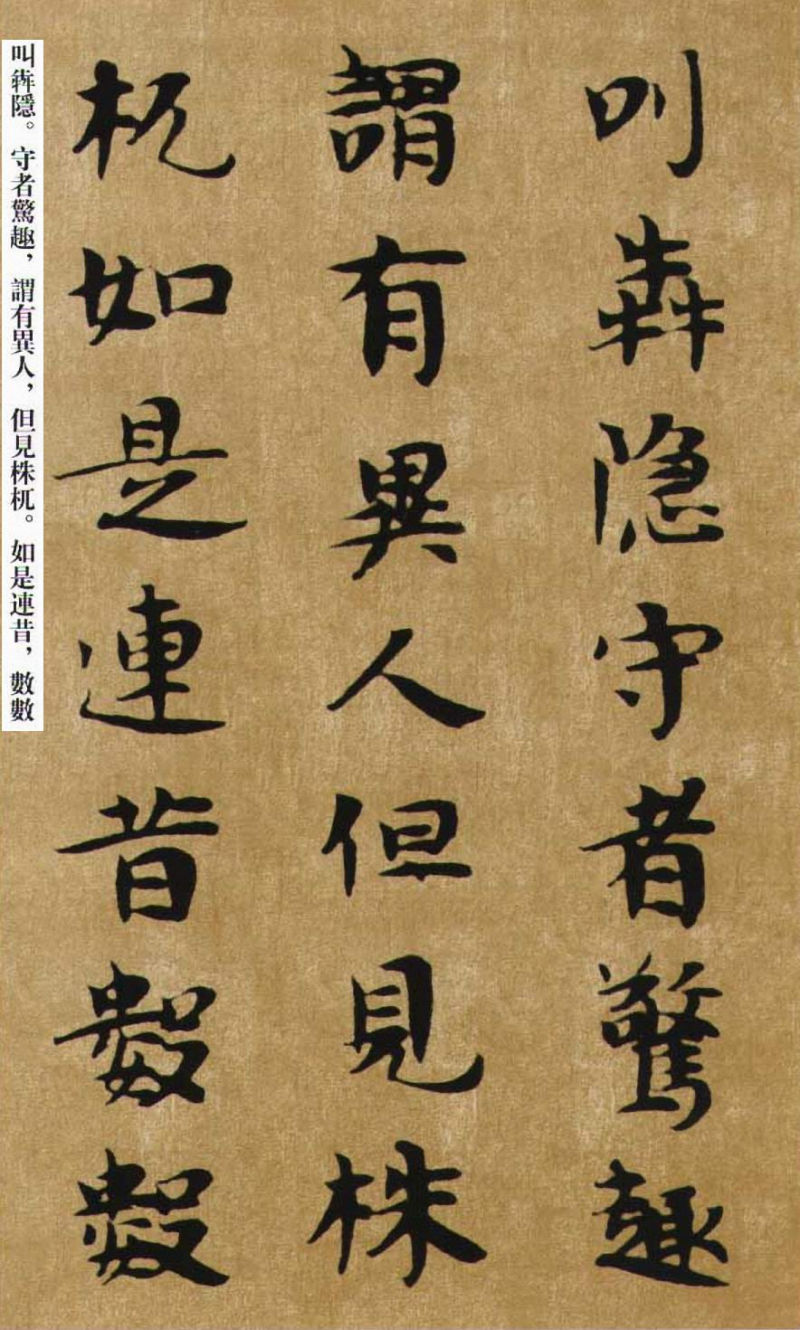 叫犇隱守者驚趣
謂有異人但見株杌
如是連昔數數
叫犇隱。守者驚趣，謂有異人，但見株杌。如是連昔，數數